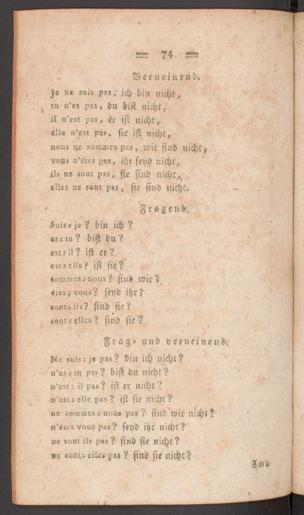 = 74 =
Verneinend.
Je ne suis pas, ich bin nicht,
tu n'es pas, du bist nicht,
il n'est pas, er ist nicht,
elle n'est pas, sie ist nicht,
nous ne sommes pas, wir sind nicht,
vous n'êtes pas, ihr seyd nicht,
ils ne sont pas, sie sind nicht,
elles ne sont pas, sie sind nicht.
Fragend.
Suis=je? bin ich?
es=tu? bist du?
est=il? ist er?
est=elle? ist sie?
sommes=nous? sind wir?
êtes=vous? seyd ihr?
sont=ils? sind sie?
sont=elles? sind sie?
Frag= und verneinend.
Ne suis=je pas? bin ich nicht?
n'es=tu pas? bist du nicht?
n'est=il pas? ist er nicht?
n'est=elle pas? ist sie nicht?
ne sommes=nous pas? sind wir nicht?
n'êtes vous pas? seyd ihr nicht?
ne sont ils pas? sind sie nicht?
ne sont=elles pas? sind sie nicht?